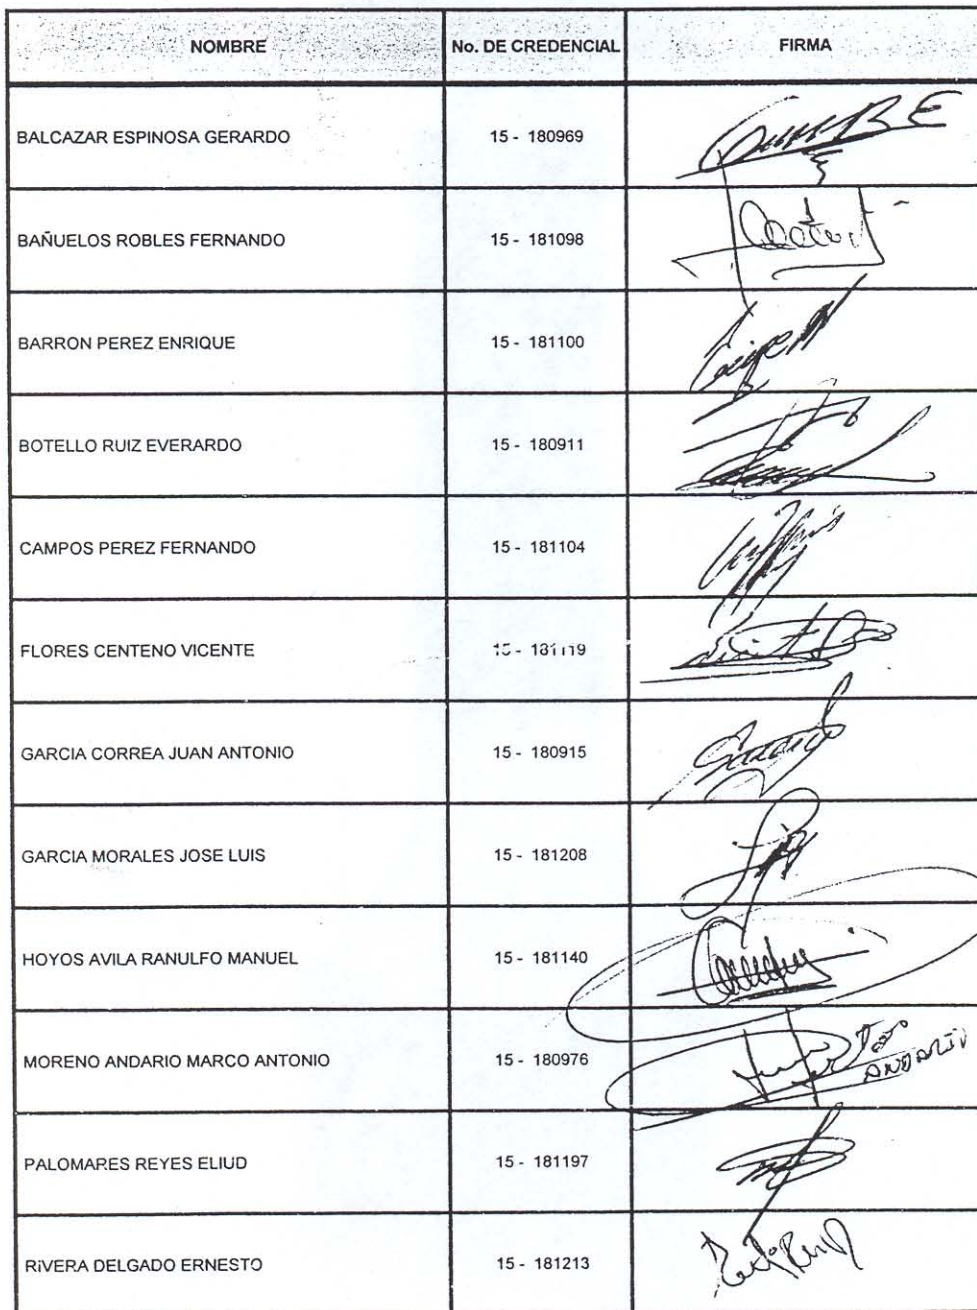 NOMBRE No. DE CREDENCIAL FIRMA
BALCAZAR ESPINOSA GERARDO 15 - 180969
BAÑUELOS ROBLES FERNANDO 15 - 181098
BARRON PEREZ ENRIQUE 15 - 181100
BOTELLO RUIZ EVERARDO 15 - 180911
CAMPOS PEREZ FERNANDO 15 - 181104
FLORES CENTENO VICENTE 15 - 181119
GARCIA CORREA JUAN ANTONIO 15 - 180915
GARCIA MORALES JOSE LUIS 15 - 181208
HOYOS AVILA RANULFO MANUEL 15 - 181140
MORENO ANDARIO MARCO ANTONIO 15 - 180976 ANDARIO
PALOMARES REYES ELIUD 15 - 181197
RIVERA DELGADO ERNESTO 15 - 181213